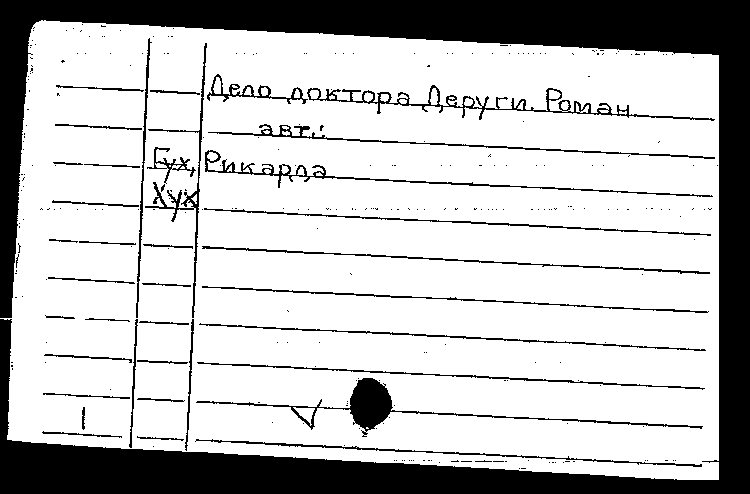 Дело доктора Деруги. Роман
авт.:
Гух, Рикарда
Хух
1